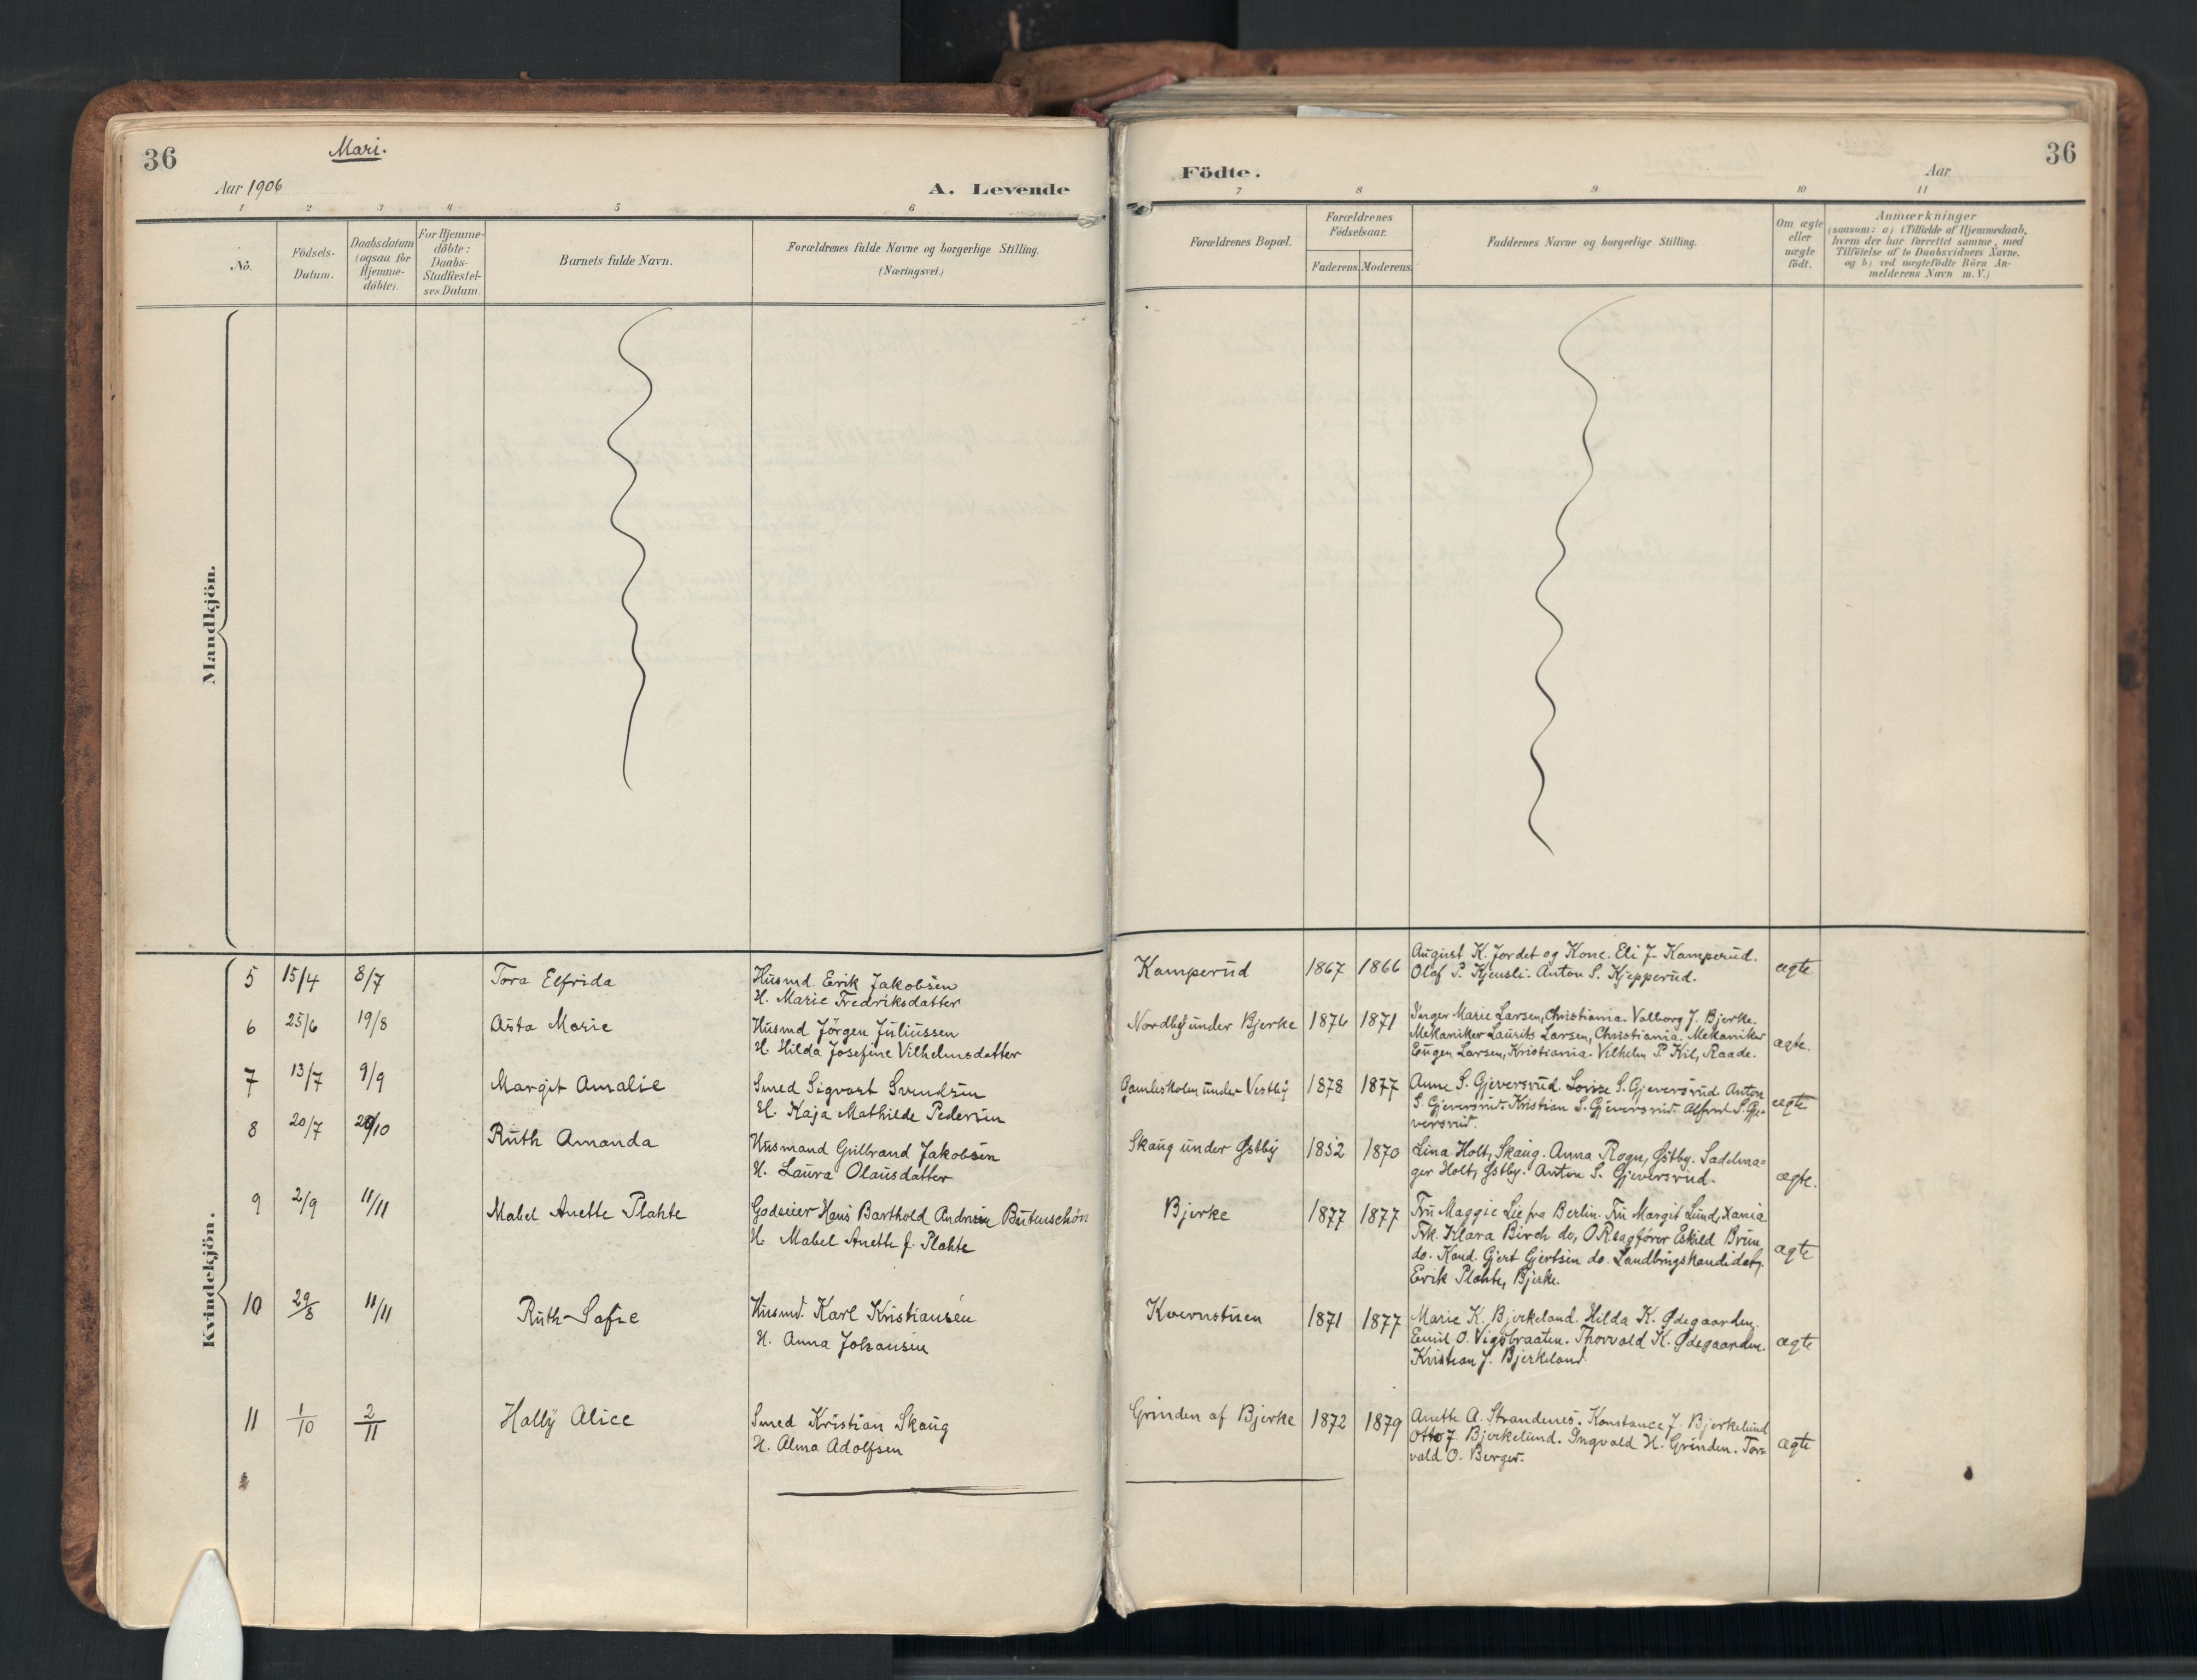 36
Mari.
Aar 1906
A. Levende
1 2 3 4 5 6
No.
Födsels-
Datum.
Daabsdatum
(ogsaa for
Hjemme-
döbte).
For Hjemme-
döbte:
Daabs-
Stadfæstel-
ses Datum.
Barnets fulde Navn.
Forældrenes fulde Navne og borgerlige Stilling.
(Næringsvei.)
Mandkjön.
Kvindekjön.
5 15/4 8/7 Tora Elfrida
Husmd. Erik Jakobsen
H. Marie Fredriksdatter
6 25/6 19/8 Asta Marie
Husmd Jörgen Juliussen
H. Hilda Josefine Vilhelmsdatter
7 13/7 9/9 Margit Amalie
Smed Sigvart Svendsen
H. Kaja Mathilde Pedersen
8 20/7 /10 Ruth Amanda
Husmand Gulbrand Jakobsen
H. Laura Olausdatter
9 2/9 11/11 Mabel Anette Plahte
Godseier Hans Barthold Andresen Butenschön
H. Mabel Anette f. Plahte
10 29/8 11/11 Ruth Sofie
Husmd. Karl Kristiansen
H. Anna Johansen
11 1/10 2/11 Hally Alice
Smed Kristian Skaug
H. Alma Adolfsen
36
Födte.
Aar
7 8 9 10 11
Forældrenes Bopæl.
Forældrenes
Födselsaar.
Faderens. Moderens.
Faddernes Navne og borgerlige Stilling.
Om ægte
eller
uægte
födt.
Anmærkninger
(saasom: a) i Tilfælde af Hjemmedaab,
hvem der har forrettet samme, med
Tilföielse af to Daabsvidners Navne,
og b) ved uægtefödte Börn An-
melderens Navn m. V.)
Kamperud 1867 1866
August K. Jordet og Kone. Eli J. Kamperud.
Olaf P. Kjensli. Anton S. Kjepperud.
ægte
Nordby under Bjerke 1876 1871
Inger Marie Larsen, Christiania. Valborg J. Bjerke.
Mekaniker Laurits Larsen, Christiania. Mekaniker
Eugen Larsen, Kristiania. Vilhelm P. Kil, Raade.
ægte.
Gamleskolen under Vestby 1878 1877
Anne S. Gjeversrud. Lovise S. Gjeversrud. Anton
S. Gjeversrud. Kristian S. Gjeversrud. Alfred S. Gje-
versrud.
ægte
Skaug under Østby 1852 1870
Lina Holt, Skaug. Anna Rogn, Østby. Sadelma=
ger Holt, Østby. Anton S. Gjeversrud.
ægte.
Bjerke 1877 1877
Fru Maggie Lie fra Berlin. Fru Margit Lund, Xania
Frk. Klara Birch do, ORsagförer Eskild Bruun
do. Kand. Gjert Gjertsen do. Landbrugskandidat
Erik Plahte, Bjerke.
ægte
Kvernstuen 1871 1877
Marie K. Bjerkeland. Hilda K. Ødegaarden.
Emil O. Vigsbraaten. Thorvald K. Ødegaarden.
Kristian J. Bjerkeland.
ægte
Grinden af Bjerke 1872 1879
Anette A. Strandenes. Konstance J. Bjerkelund
Otto J. Bjerkelund. Ingvald H. Grinden. Tor=
vald O. Berger.
ægte